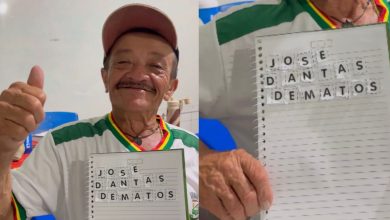 JOSE
DANTAS
DEMATOS
JOSE
DANTAS
DEMATOS